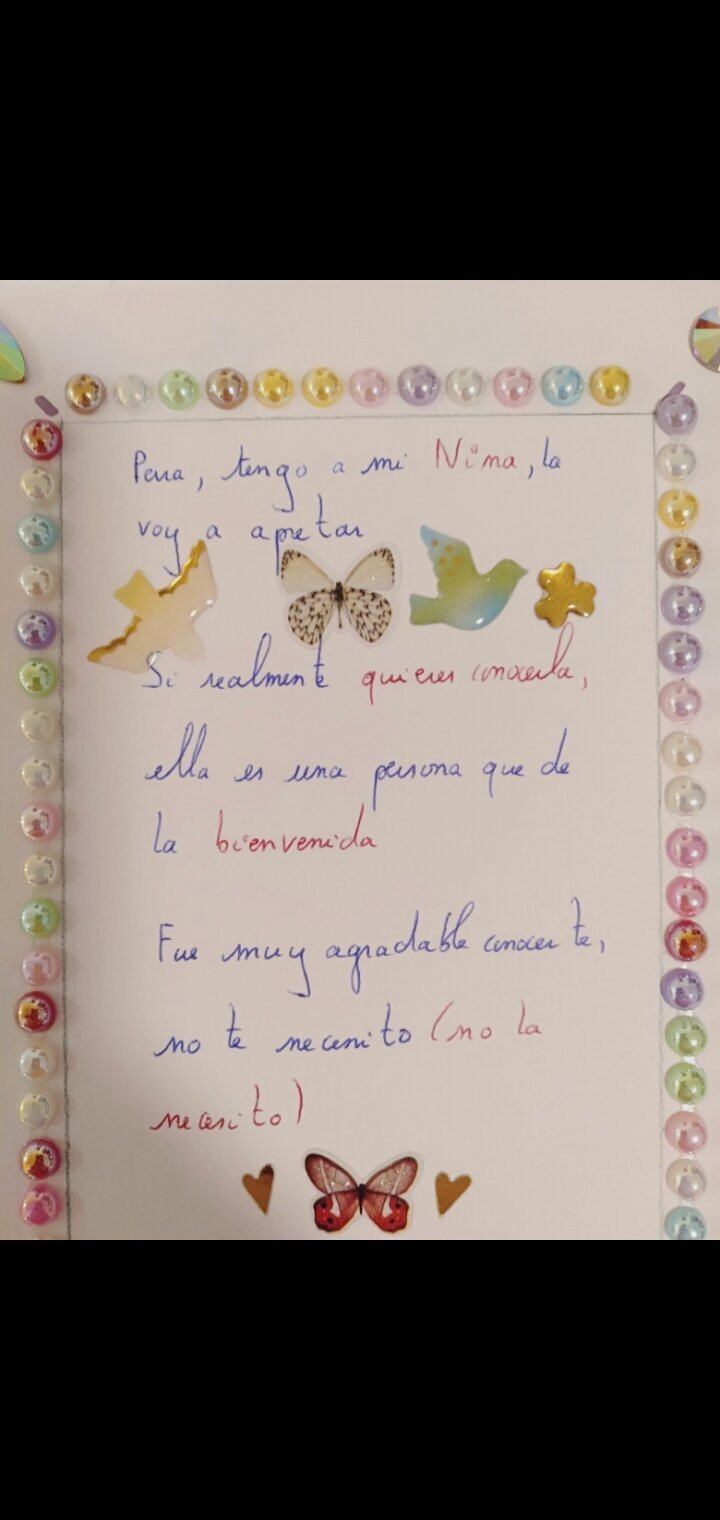 Pena, tengo a mi Nina, la
voy a apretar
Si realmente quieres conocerla,
ella es una persona que de
la bienvenida
Fue muy agradable conocerte,
no te necesito (no la
necesito)